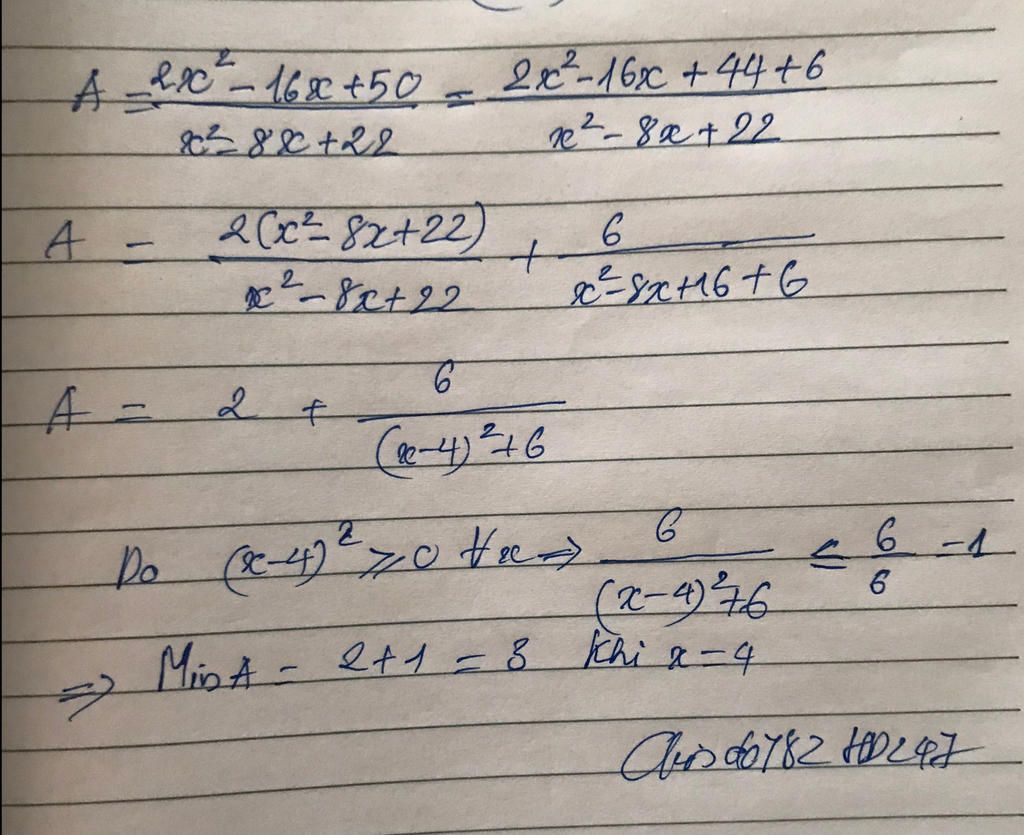 A = \frac{2x^2 - 16x + 50}{x^2 - 8x + 22} = \frac{2x^2 - 16x + 44 + 6}{x^2 - 8x + 22}
A = \frac{2(x^2 - 8x + 22)}{x^2 - 8x + 22} + \frac{6}{x^2 - 8x + 16 + 6}
A = 2 + \frac{6}{(x-4)^2 + 6}
Do (x-4)^2 ⩾ 0 ∀x ⇒ \frac{6}{(x-4)^2 + 6} ≤ \frac{6}{6} = 1
⇒ Min A = 2 + 1 = 3 Khi x = 4